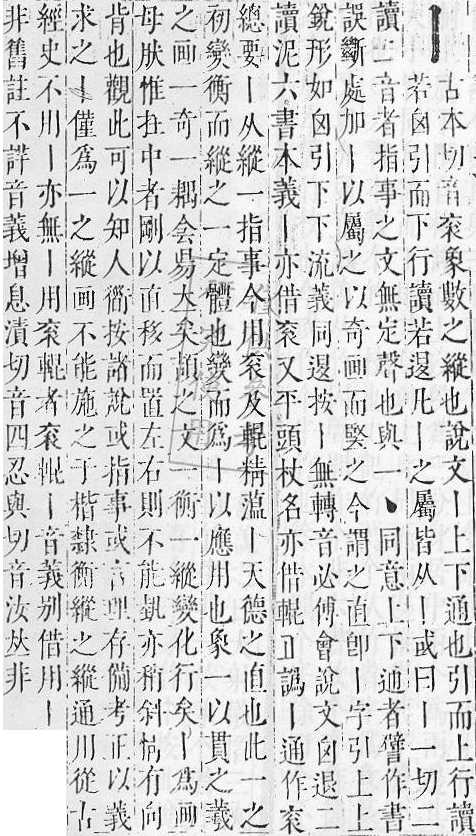 丨 古本切音衮象數之縱也說文丨上下通也引而上行讀
若囟引而下行讀若𨓤凡丨之屬皆从丨或曰丨一切二
讀二音者指事之文無定聲也與一丶同意上下通者譬作書
誤斷處加丨以屬之以奇画而竪之今謂之直卽丨字引上上
銳形如囟引下下流義同𨓤按丨無轉音必傅會說文囟退二
讀泥六書本義丨亦借衮又平頭杖名亦借輥𠀤譌丨通作衮
總要丨从縱一指事今用衮及輥精薀丨天德之直也此一之
初變衡而縱之一定體也變而爲丨以應用也象一以貫之羲
之画一奇一耦会昜大矣頡之文一衡一縱變化行矣丨爲画
母肰惟在中者剛以直移而置左右則不能埶亦稍斜惝有向
背也觀此可以知人衜按諸說或指事或言理存僃考正以義
求之丨僅爲一之縱画不能施之于楷隸衡縱之縱通用從古
經史不用丨亦無丨用衮輥者衮輥丨音義别借用丨
非舊註不詳音義增息漬切音四忍與切音汝𠀤非